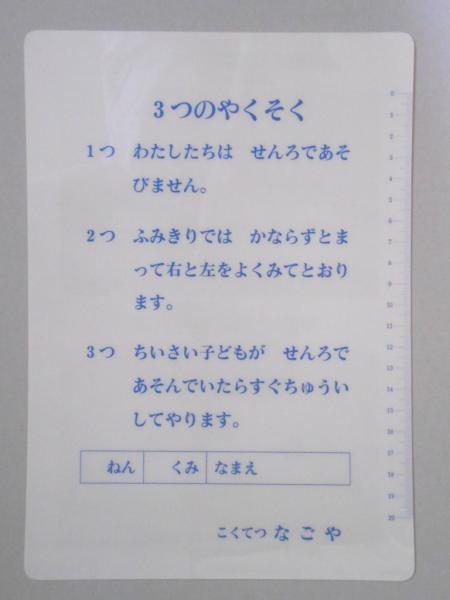 3つのやくそく
1つ　わたしたちは　せんろであそ
びません。
2つ　ふみきりでは　かならずとま
って右と左をよくみてとおり
ます。
3つ　ちいさい子どもが　せんろで
あそんでいたらすぐちゅうい
してやります。
ねん　くみ　なまえ
こくてつ なごや
0
1
2
3
4
5
6
7
8
9
10
11
12
13
14
15
16
17
18
19
20